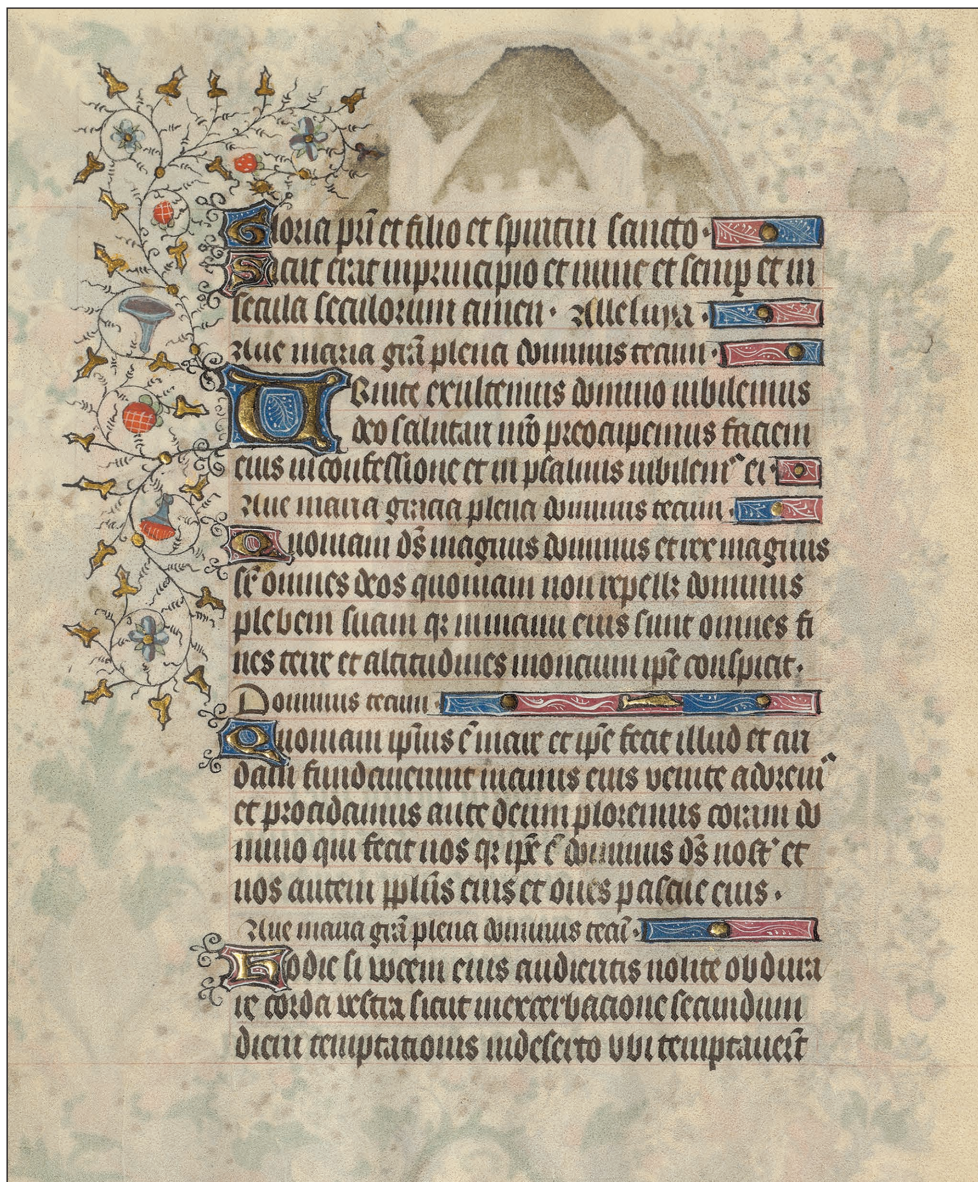 Gloria pr̄i et filio et spiritui sancto
Sicut erat in principio et nunc et semp̲ et in
secula seculorum amen· Alleluya·
Aue maria grā plena dominus tecum·
Uenite exultemus domino iubilemus
deo salutari nr̄o preocupemus faciem
eius in confessione et in psalmis iubilem᷒ ei·
Aue maria gracia plena dominus tecum·
Quoniam ds̄ magnus dominus et rex magnus
sr̄ omnes deos quoniam non repellꝫ dominus
plebem suam qꝛ in manu eius sunt omnes fi
nes terre et altitudines moncium ip̄e conspicit·
Dominus tecum
Quoniam ip̄ius ē mare et ip̄e fecit illud et ari
dam fundauerunt manus eius venite adorem᷒
et procidamus ante deum ploremus coram do
mino qui fecit nos qꝛ ip̄e ē dominus ds̄ nost᷒ et
nos autem pp̄lus eius et oues pascue eius·
Aue maria grā plena dominus tecū·
Hodie si vocem eius audieritis nolite obdura
re corda vestra sicut in exerbacione secundum
diem temptationis in deserto vbi temptauer̄t